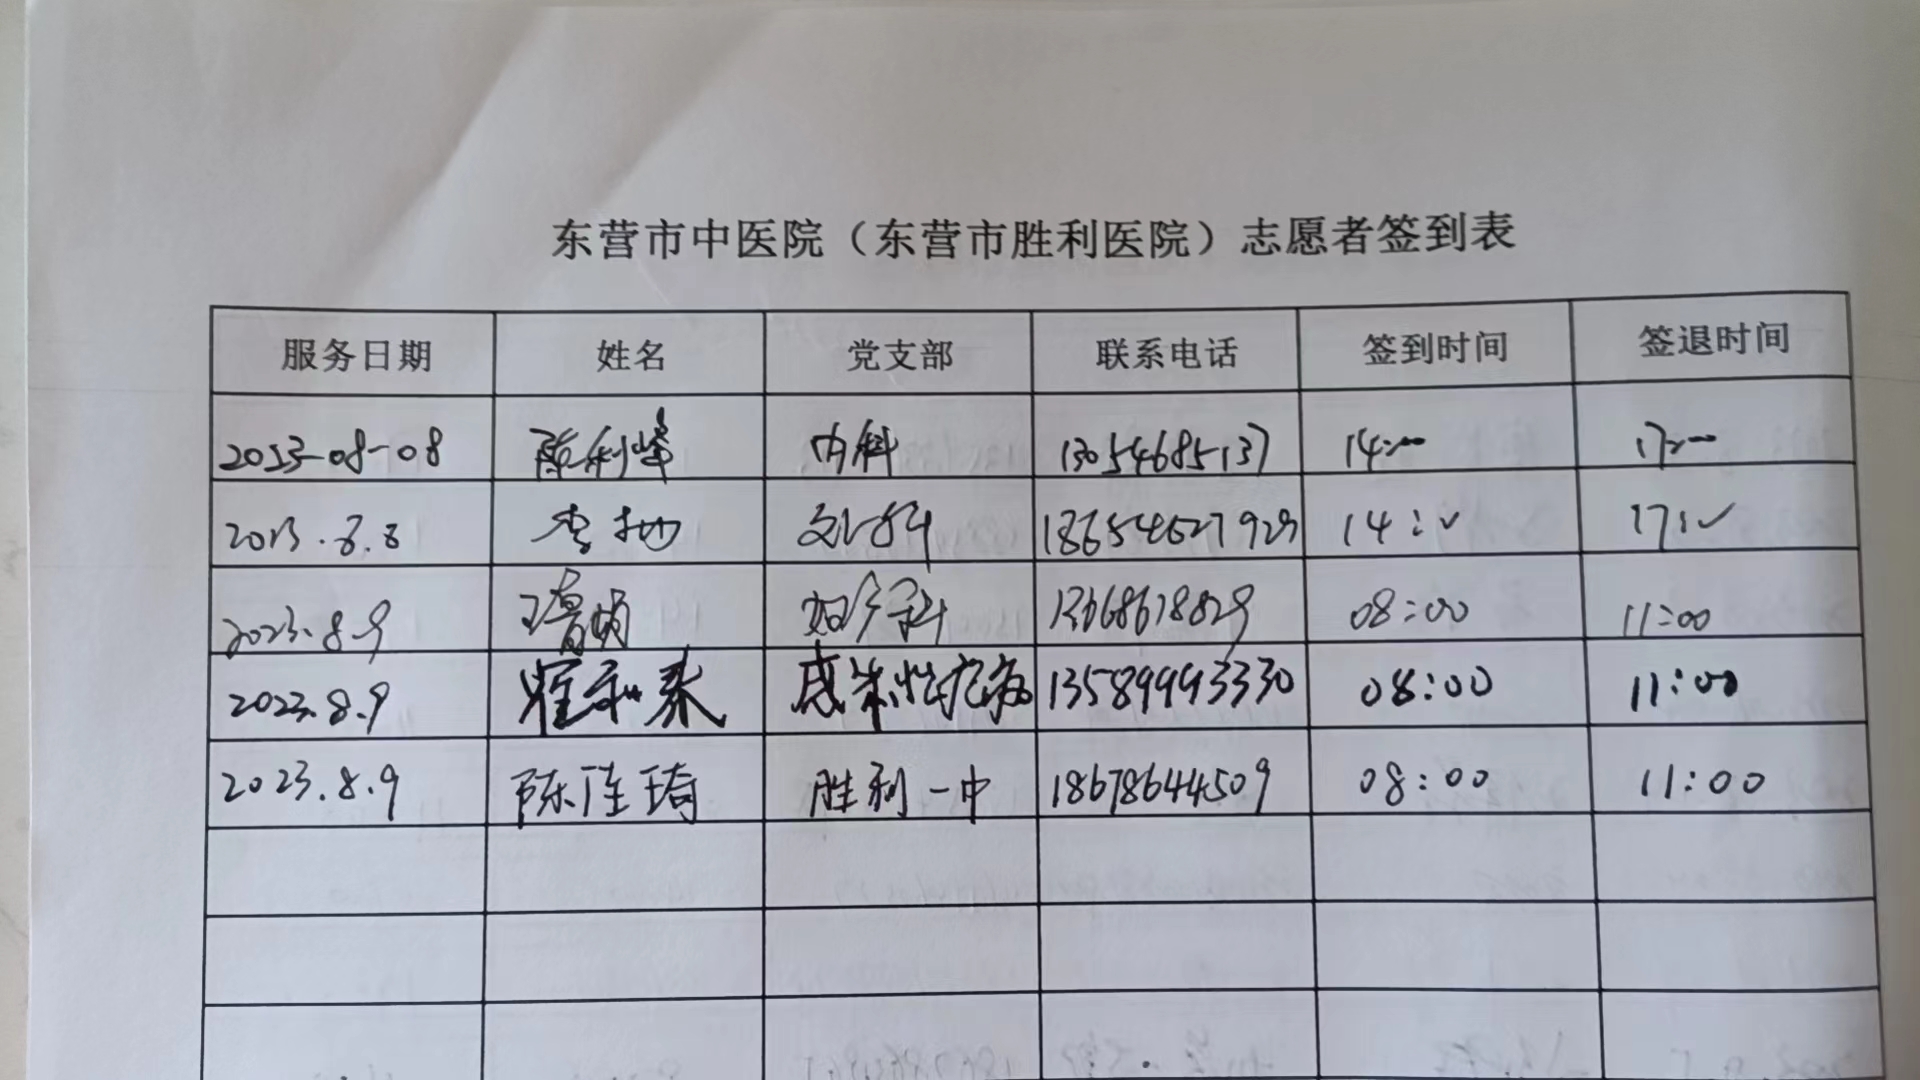 东营市中医院（东营市胜利医院）志愿者签到表
服务日期 姓名 党支部 联系电话 签到时间 签退时间
2023-08-08 陈利峰 内科 13054685137 14:00 17:00
2023.8.8 李 18654627929 14: 17:
2023.8.9 王 妇产科 13668618829 08:00 11:00
2023.8.9 崔和泰 感染性疾病 13589993330 08:00 11:00
2023.8.9 陈佳琦 胜利一中 18678644509 08:00 11:00